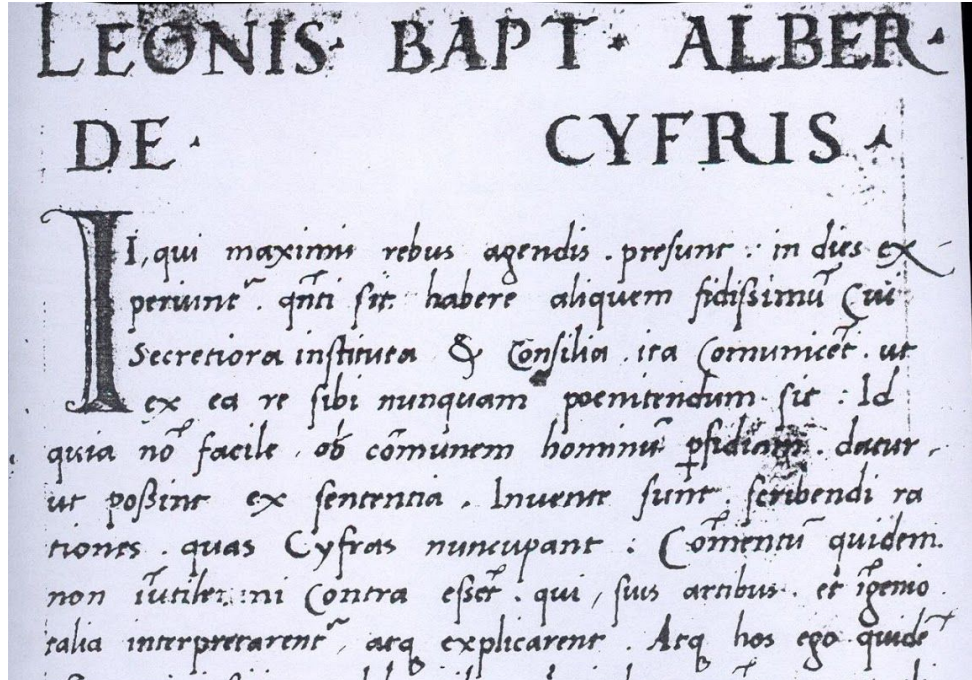 LEONIS · BAPT · ALBER ·
DE · CYFRIS ·
II, qui maximis rebus agendis . presunt : in dies ex
periunt᷑ qn̄ti sit habere aliquem fidissimū Cui
Secretiora instituta & Consilia ita Comunicēt . ut
ex ea re sibi nunquam poenitendum sit : Id
quia nō facile ob cōmunem hominū ꝑfidiam . datur ,
ut possint ex sententia . Invente sunt . scribendi ra
tiones . quas Cyfras nuncupant : Cōmentū quidem .
non īutile: ni Contra essēt . qui , suis artibus . et īgenio
talia interpretarent᷑ , atq explicarent . Atq hos ego quidē